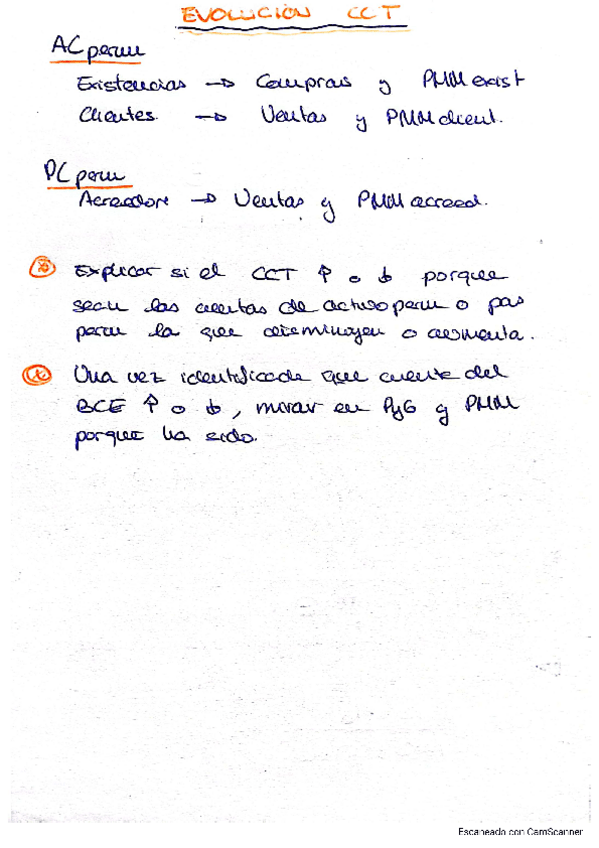 EVOLUCIÓN CCT
AC perm
Existencias → Compras y PMM exist
Clientes → Ventas y PMM client.
PC perm
Acreedore → Ventas y PMM acreed.
Explicar si el CCT ↑ o ↓ porque
sean las cuentas de activo perm o pas
perm la que disminuyen o aumenta.
Una vez identificada que cuenta del
BCE ↑ o ↓, mirar en PyG y PMM
porque ha sido.
Escaneado con CamScanner